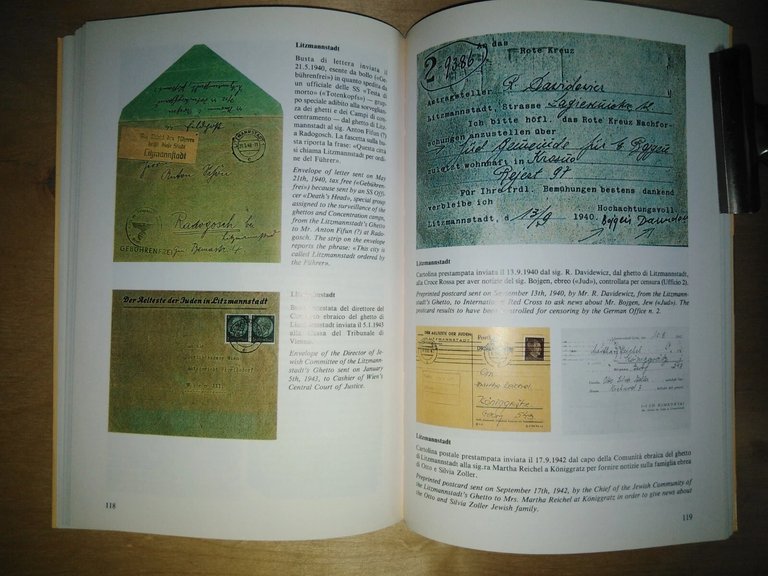 Litzmannstadt
Busta di lettera inviata il
21.5.1940, esente da bollo («Ge-
bührenfrei») in quanto spedita da
un ufficiale delle SS «Testa di
morto» («Totenkopfs») — grup-
po speciale adibito alla sorveglian-
za dei ghetti e dei Campi di con-
centramento — dal ghetto di Litz-
mannstadt al sig. Anton Fifun (?)
a Radogosch. La fascetta sulla bu-
sta riporta la frase: «Questa città
si chiama Litzmannstadt per ordi-
ne del Führer».
Envelope of letter sent on May
21th, 1940, tax free («Gebühren-
frei») because sent by an SS Offi-
cer «Death's Head», special group
assigned to the surveillance of the
ghettos and Concentration camps,
from the Litzmannstadt's Ghetto
to Mr. Anton Fifun (?) at Rado-
gosch. The strip on the envelope
reports the phrase: «This city is
called Litzmannstadt ordered by
the Führer».
Litzmannstadt
GEBÜHRENFREI
Radogosch bei
Der Aelteste der Juden in Litzmannstadt
Litzmannstadt
Busta intestata del direttore del
Comitato ebraico del ghetto di
Litzmannstadt inviata il 5.1.1943
alla Cassa del Tribunale di
Vienna.
Envelope of the Director of Je-
wish Committee of the Litzmann-
stadt's Ghetto sent on January
5th, 1943, to Cashier of Wien's
Central Court of Justice.
118
An das
Rote Kreuz
2 9386
Antragsteller R. Davidewicz
Litzmannstadt, Strasse
Ich bitte höfl. das Rote Kreuz Nachfor-
schungen anzustellen über
zuletzt wohnhaft in
Für Ihre frdl. Bemühungen bestens dankend
verbleibe ich Hochachtungsvoll
Litzmannstadt, d. 13/9 1940.
Litzmannstadt
Cartolina prestampata inviata il 13.9.1940 dal sig. R. Davidewicz, dal ghetto di Litzmannstadt,
alla Croce Rossa per aver notizie del sig. Bojgen, ebreo («Jud»), controllata per censura (Ufficio 2).
Preprinted postcard sent on September 13th, 1940, by Mr. R. Davidewicz, from the Litzmann-
stadt's Ghetto, to International Red Cross to ask news about Mr. Bojgen, Jew («Jud»). The
postcard results to have been controlled for censoring by the German Office n. 2.
DER AELTESTE DER JUDEN
LITZMANNSTADT
Martha Reichel
Königgrätz
Litzmannstadt
Cartolina postale prestampata inviata il 17.9.1942 dal capo della Comunità ebraica del ghetto
di Litzmannstadt alla sig.ra Martha Reichel a Königgratz per fornire notizie sulla famiglia ebrea
di Otto e Silvia Zoller.
Preprinted postcard sent on September 17th, 1942, by the Chief of the Jewish Community of
the Litzmannstadt's Ghetto to Mrs. Martha Reichel at Königgratz in order to give news about
the Otto and Silvia Zoller Jewish family.
119